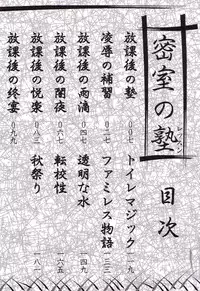 密室の塾
目次
放課後の塾 〇〇七
凌辱の補習 〇二七
放課後の雨滴 〇四七
放課後の闇夜 〇六七
放課後の悦楽 〇八三
放課後の終宴 〇九九
トイレマジック 一一九
ファミレス物語 一三三
透明な水 一四九
転校性 一六五
秋祭り 一八一